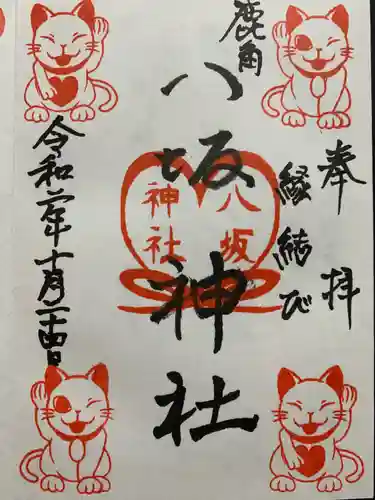 奉拝
縁結び
鹿角
八坂神社
八坂
神社
令和二年十月二十四日